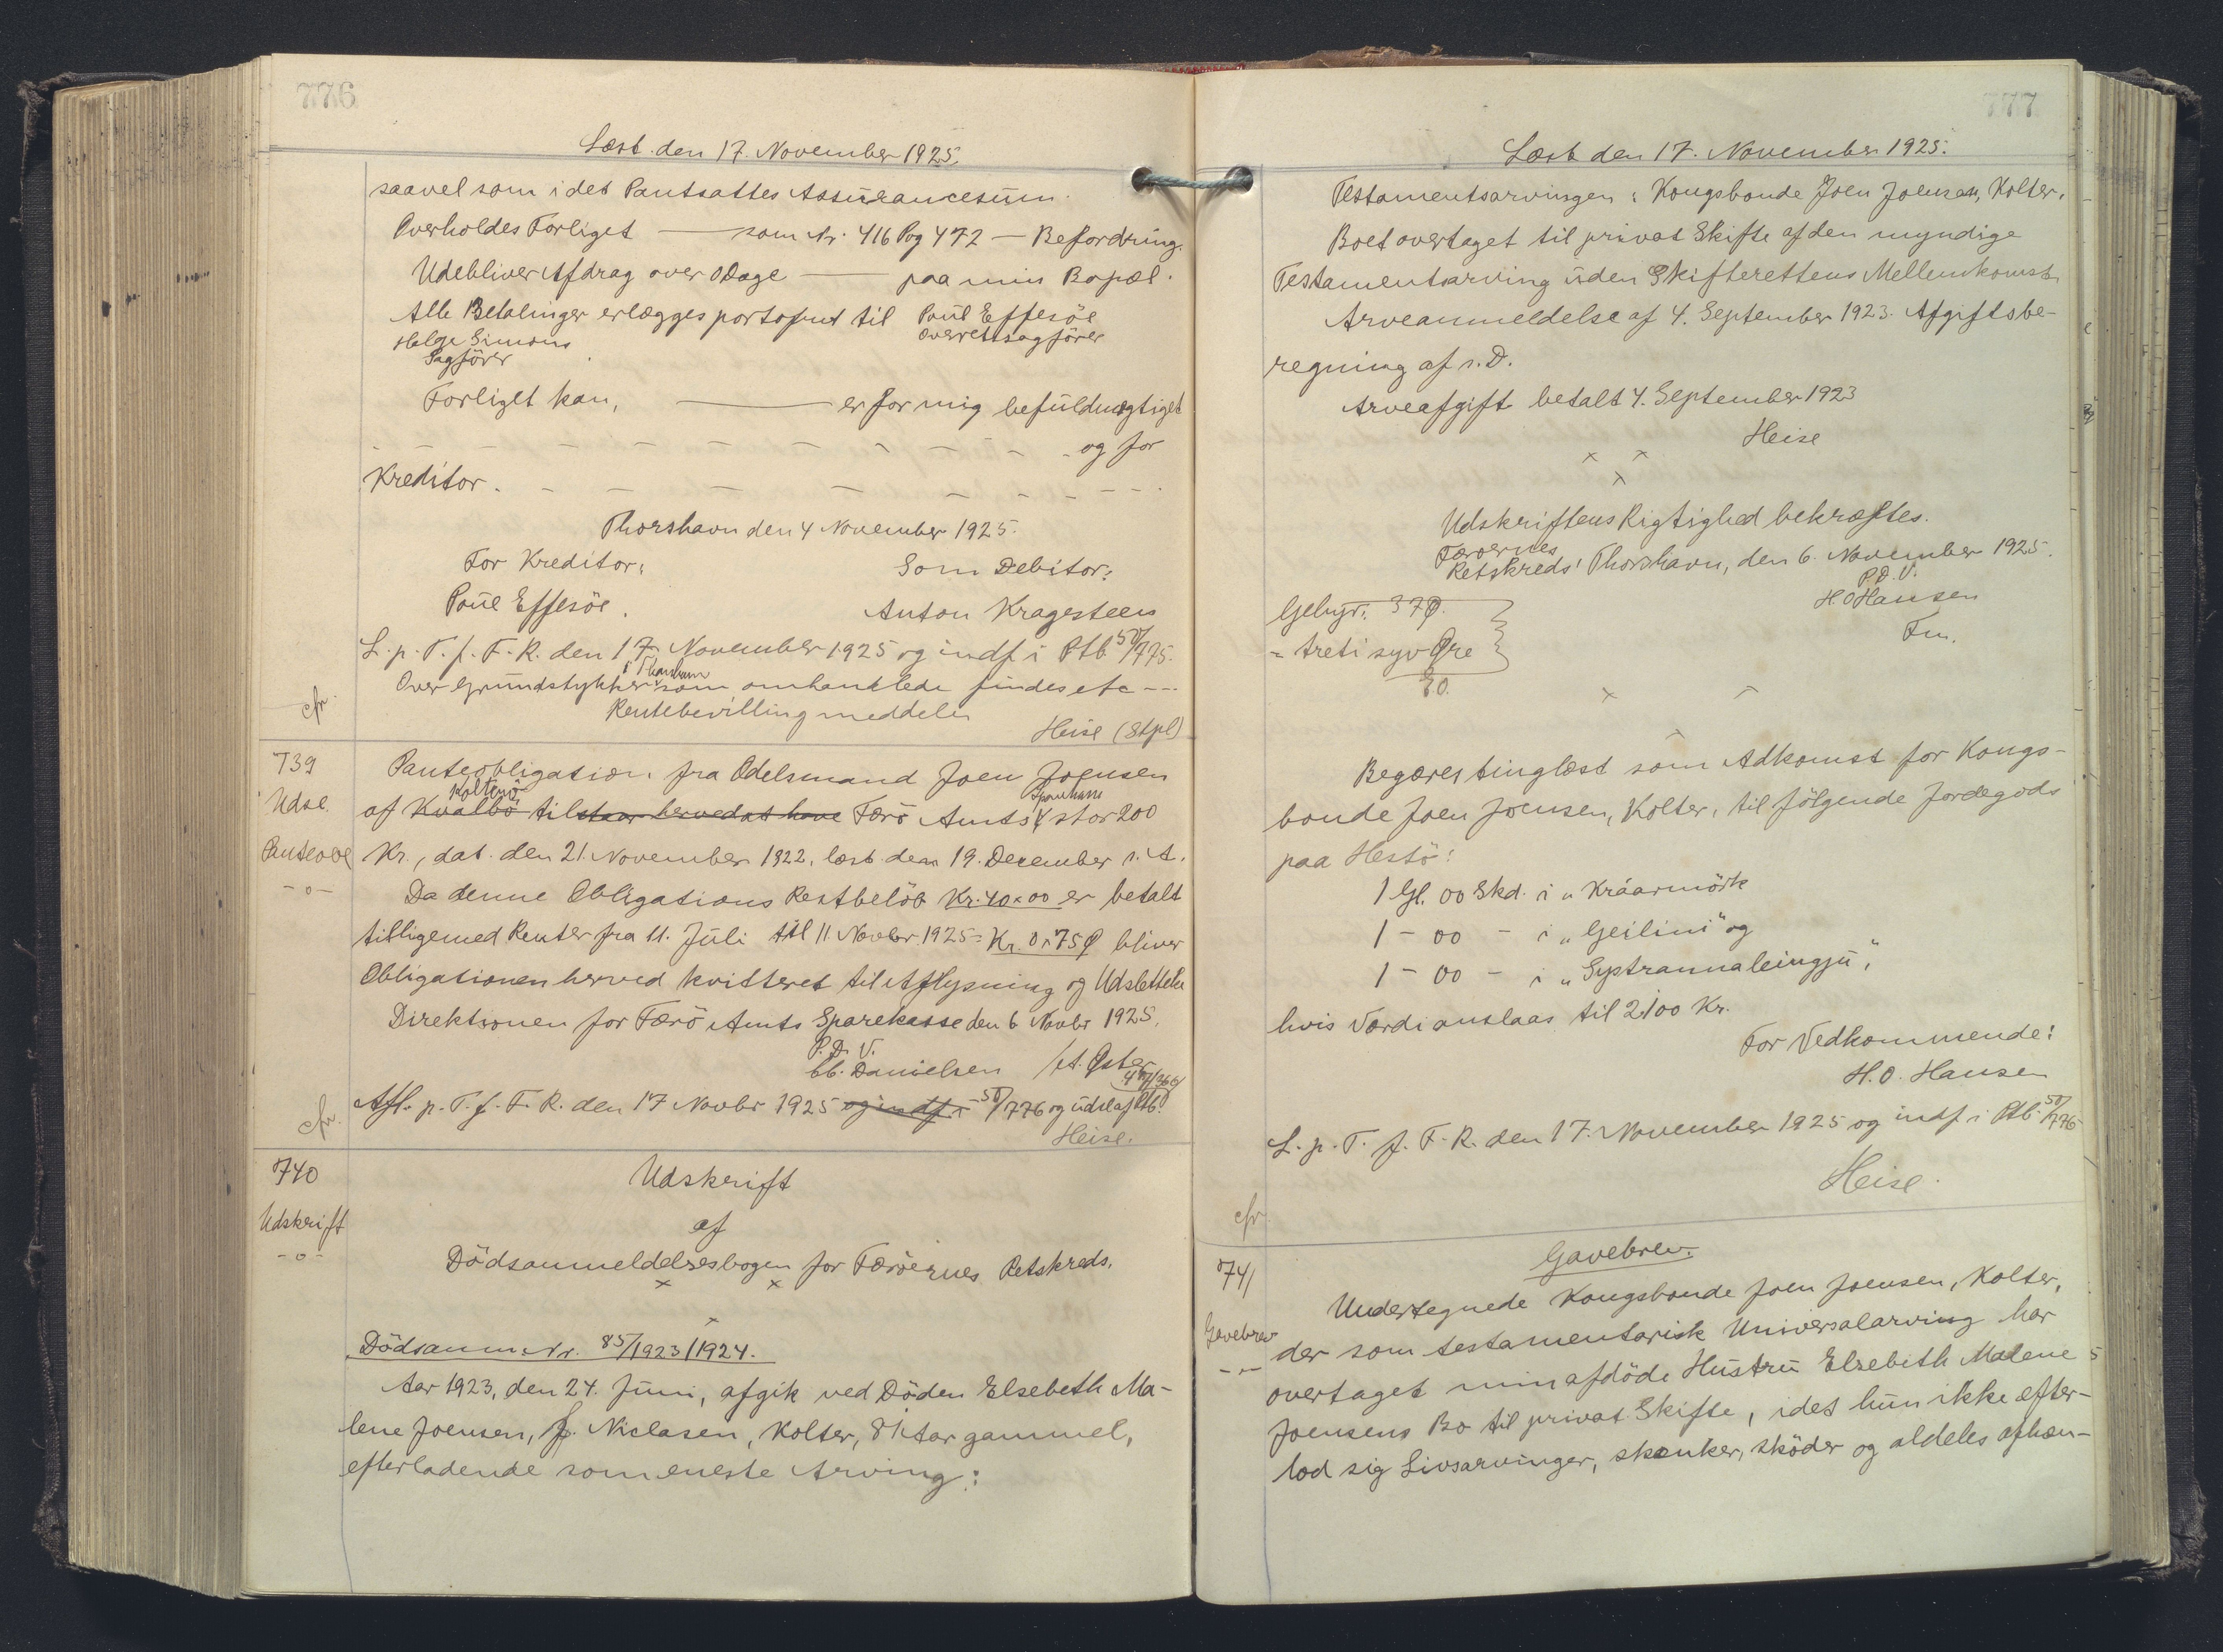 776
Læst den 17. November 1925.
saavel som i det Pantsattes Assurancesum.
Overholdes Forliget — som Nr. 416 Pag 472 — Befordring.
Udebliver Afdrag over 0 Dage — paa min Bopæl.
Alle Betalinger erlægges portofrit til Poul Effersöe
Helge Simons Overretssagfører
Sagförer
Forliget kan, — er for mig befuldmægtiget
- - - - - - - - - - og for
Kreditor. - - - - - - - - -
Thorshavn den 4 November 1925.
For Kreditor: Som Debitor:
Poul Effersöe. Anton Kragesteen
L. p. T. f. F. R. den 17. November 1925 og indf. i Ptb. 50/775.
i Thorshavn
Over Grundstykker som omhandlede findes etc ---
cfr. Rentebevilling meddeles
Heise (Stpl)
739 Panteobligation fra Odelsmand Joen Joensen
Koltenö Sparekasse
Udsl. af Kvalbö til staar hervedat have Færö Amts stor 200
Panteobl Kr., dat. den 21. November 1922, læst den 19. December s. A.
-o- Da denne Obligations Restbelöb Kr. 40×00 er betalt
tilligemed Renter fra 11. Juli til 11 Novbr 1925 = Kr. 0,75 Ø bliver
Obligationen herved kvitteret til Aflysning og Udslettelse
Direktionen for Færö Amts Sparekasse den 6 Novbr 1925.
P. D. V.
Chr. Danielsen / A. Øster
47/366
cfr. Afl. p. T. f. F. R. den 17 Novbr 1925 og indf. i 50/776 og udsl af Ptb.
Heise.
740 Udskrift
Udskrift af
-o- Dödsanmeldelsesbogen for Færöernes Retskreds.
× ×
×
Dödsanm. Nr. 85/1923/1924.
Aar 1923, den 24. Juni, afgik ved Döden Elsebeth Ma-
lene Joensen, f. Niclasen, Kolter, 81 Aar gammel,
efterladende som eneste Arving:
777
Læst den 17. November 1925.
Testamentsarvingen: Kongsbonde Joen Joensen, Kolter.
Boet overtaget til privat Skifte af den myndige
Testamentsarving uden Skifterettens Mellemkomst.
Arveanmeldelse af 4. September 1923. Afgiftsbe-
regning af s. D.
Arveafgift betalt 4. September 1923
Heise
× ×
×
Udskriftens Rigtighed bekræftes.
Færøernes
Retskreds' Thorshavn, den 6. November 1925.
P. D. V.
Gebyr: 37 Ø. H. O Hansen
= treti syv Øre Fm.
E.O.
× ×
Begæres tinglæst som Adkomst for Kongs-
bonde Joen Joensen, Kolter, til fölgende Jordegods
paa Hestö:
1 Gl. 00 Skd. i „Kráarmörk
1 - 00 - i „Geilini" og
1 - 00 - i „Systrannaleingju",
hvis Værdi anslaas til 2100 Kr.
For Vedkommende:
H. O. Hansen
L. p. T. f. F. R. den 17. November 1925 og indf. i Ptb. 50/776
Heise.
cfr.
741 Gavebrev.
Undertegnede Kongsbonde Joen Joensen, Kolter,
Gavebrev der som testamentarisk Universalarving har
-"- overtaget min afdöde Hustru Elsebeth Malene
Joensens Bo til privat Skifte, idet hun ikke efter-
lod sig Livsarvinger, skænker, sköder og aldeles afhæn-